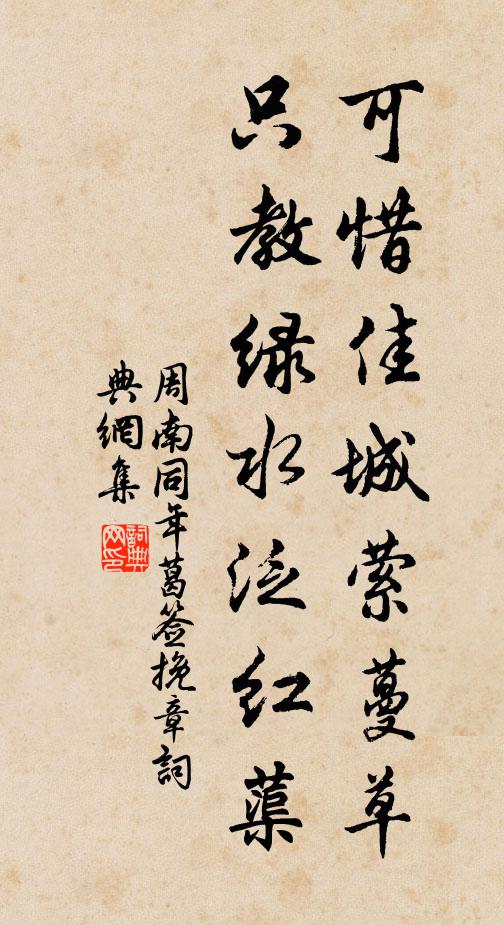 可惜佳城萦蔓草
只教绿水泛红蕖
周南同年葛签挽章詞
典網集
詞典网印